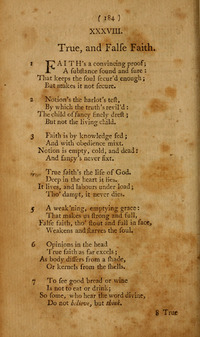 ( 384 )
XXXVIII.
True, and Falſe Faith.
1 FAITH's a convincing proof;
A ſubſtance ſound and ſure:
That keeps the ſoul ſecur'd enough;
But makes it not ſecure.
2 Notion's the harlot's teſt,
By which the truth's revil'd:
The child of fancy finely dreſt;
But not the living child.
3 Faith is by knowledge fed;
And with obedience mixt.
Notion is empty, cold, and dead:
And fancy's never fixt.
4 True faith's the life of God.
Deep in the heart it lies.
It lives, and labours under load;
Tho' dampt, it never dies.
5 A weak'ning, emptying grace:
That makes us ſtrong and full.
Falſe faith, tho' ſtout and full in face,
Weakens and ſtarves the ſoul.
6 Opinions in the head
True faith as far excels;
As body differs from a ſhade,
Or kernels from the ſhells.
7 To ſee good bread or wine
Is not to eat or drink;
So ſome, who hear the word divine,
Do not believe, but
8 True